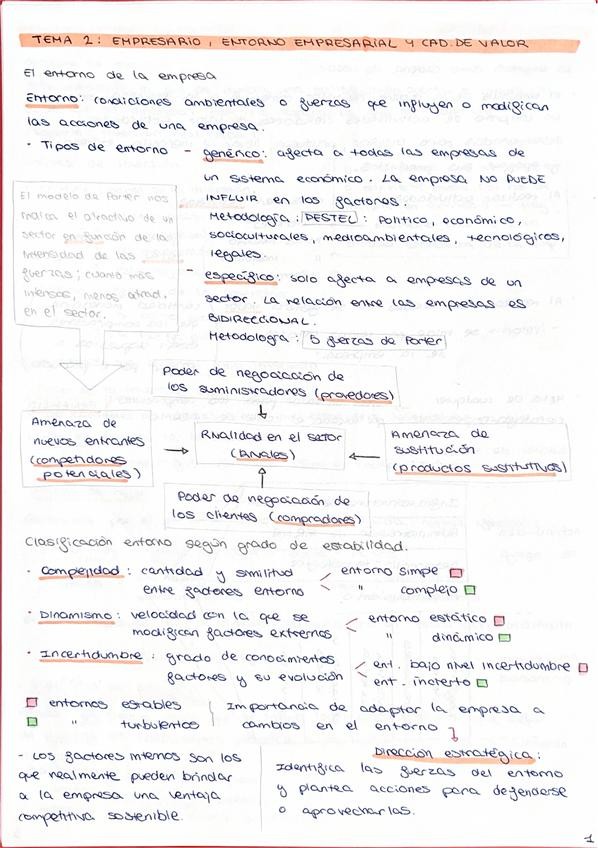 TEMA 2: EMPRESARIO, ENTORNO EMPRESARIAL Y CAD. DE VALOR
El entorno de la empresa
Entorno: condiciones ambientales o fuerzas que influyen o modifican
las acciones de una empresa.
· Tipos de entorno - genérico: afecta a todas las empresas de
un sistema económico. La empresa NO PUEDE
INFLUIR en los factores.
Metodología: PESTEL: Político, económico,
socioculturales, medioambientales, tecnológicos,
legales.
- específico: solo afecta a empresas de un
sector. La relación entre las empresas es
BIDIRECCIONAL.
Metodología: 5 fuerzas de Porter
El modelo de Porter nos
indica el atractivo de un
sector en función de la
intensidad de las
fuerzas; cuanto más
intensas, menos atrad.
en el sector.
Poder de negociación de
los suministradores (provedores)
Amenaza de
nuevos entrantes
(competidores
potenciales)
Rivalidad en el sector
(Rivales)
Amenaza de
sustitución
(productos sustitutivos)
Poder de negociación de
los clientes (compradores)
Clasificación entorno según grado de estabilidad.
· Complejidad: cantidad y similitud < entorno simple
entre factores entorno " complejo
· Dinamismo: velocidad con la que se < entorno estático
modifican factores externos " dinámico
· Incertidumbre: grado de conocimientos < ent. bajo nivel incertidumbre
factores y su evolución ent. incierto
entornos estables
" turbulentos
Importancia de adaptar la empresa a
cambios en el entorno
- Los factores internos son los
que realmente pueden brindar
a la empresa una ventaja
competitiva sostenible.
Dirección estratégica:
Identifica las fuerzas del entorno
y plantea acciones para defenderse
o aprovecharlas.
1